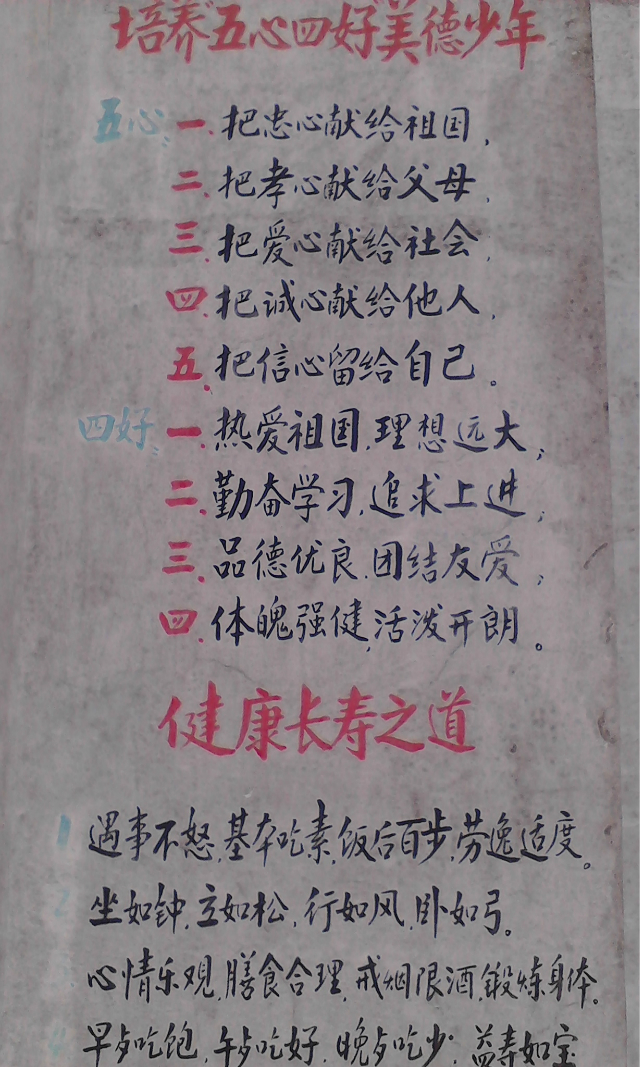 培养五心四好美德少年
五心: 一.把忠心献给祖国,
二.把孝心献给父母,
三.把爱心献给社会,
四.把诚心献给他人,
五.把信心留给自己。
四好: 一.热爱祖国,理想远大;
二.勤奋学习,追求上进;
三.品德优良,团结友爱;
四.体魄强健,活泼开朗。
健康长寿之道
1 遇事不怒,基本吃素,饭后百步,劳逸适度。
2 坐如钟,立如松,行如风,卧如弓。
3 心情乐观,膳食合理,戒烟限酒,锻炼身体。
4 早歺吃饱,午歺吃好,晚歺吃少,益寿如宝